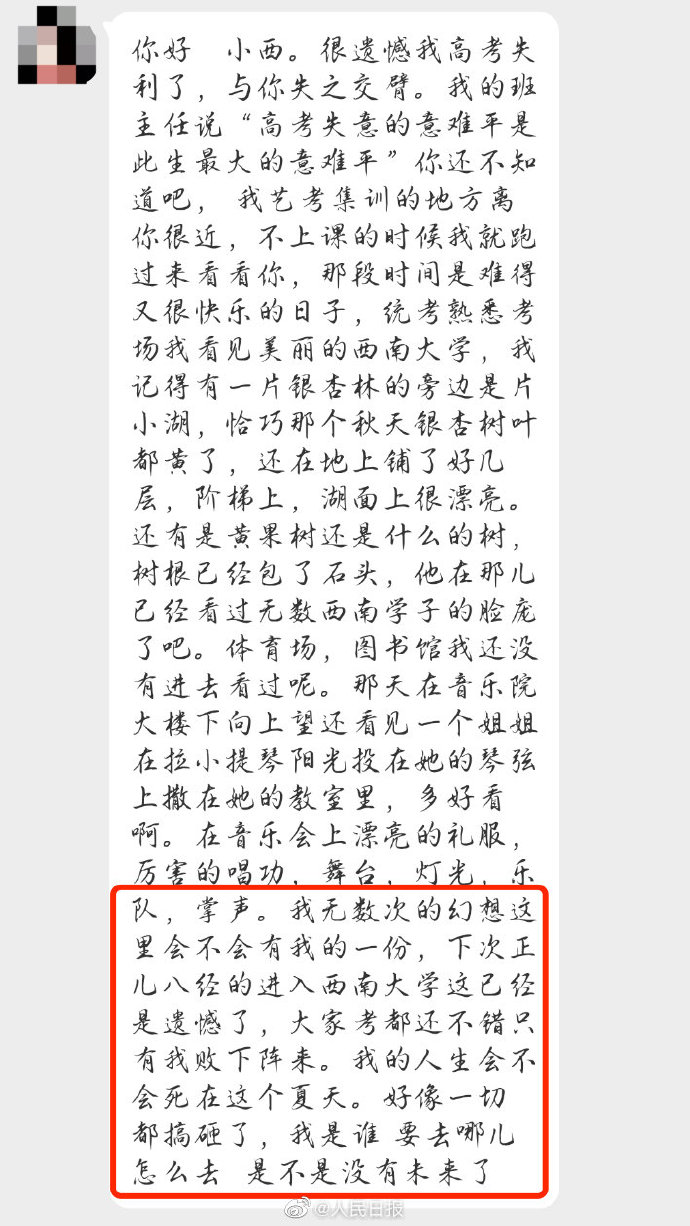 你好 小西。很遗憾我高考失
利了，与你失之交臂。我的班
主任说“高考失意的意难平是
此生最大的意难平”你还不知
道吧， 我艺考集训的地方离
你很近，不上课的时候我就跑
过来看看你，那段时间是难得
又很快乐的日子，统考熟悉考
场我看见美丽的西南大学，我
记得有一片银杏林的旁边是片
小湖，恰巧那个秋天银杏树叶
都黄了，还在地上铺了好几
层，阶梯上，湖面上很漂亮。
还有是黄果树还是什么的树，
树根已经包了石头，他在那儿
已经看过无数西南学子的脸庞
了吧。体育场，图书馆我还没
有进去看过呢。那天在音乐院
大楼下向上望还看见一个姐姐
在拉小提琴阳光投在她的琴弦
上撒在她的教室里，多好看
啊。在音乐会上漂亮的礼服，
厉害的唱功，舞台，灯光，乐
队，掌声。我无数次的幻想这
里会不会有我的一份，下次正
儿八经的进入西南大学这已经
是遗憾了，大家考都还不错只
有我败下阵来。我的人生会不
会死在这个夏天。好像一切
都搞砸了，我是谁 要去哪儿
怎么去 是不是没有未来了
@人民日报